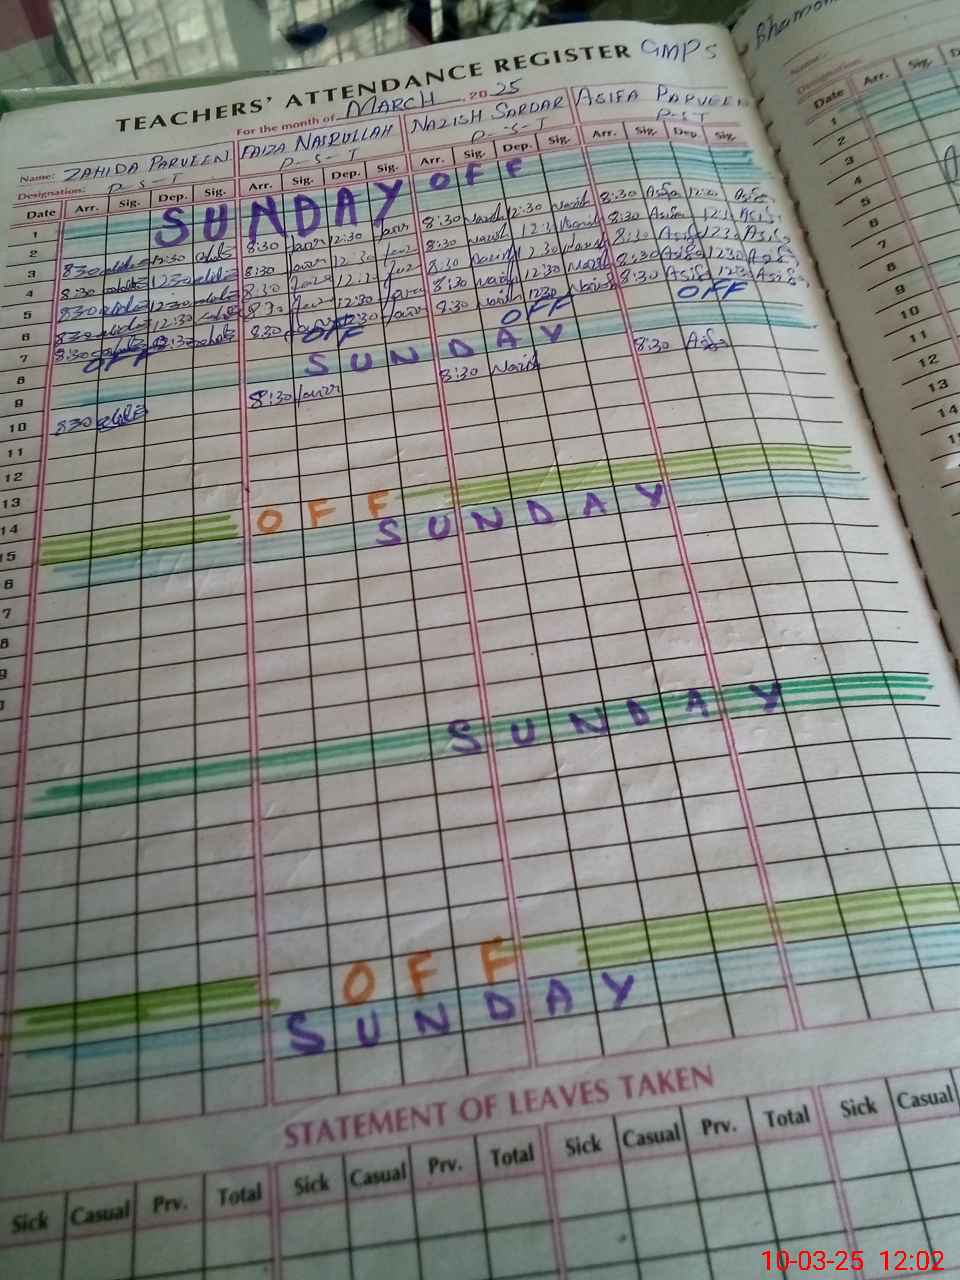 TEACHERS' ATTENDANCE REGISTER GMPS
For the month of MARCH, 20 25
Name: ZAHIDA PARVEEN FAIZA NASRULLAH NAZISH SARDAR ASIFA PARVEEN
Designation: P-S-T P-S-T P-S-T P-S-T
Date Arr. Sig. Dep. Sig. Arr. Sig. Dep. Sig. Arr. Sig. Dep. Sig. Arr. Sig. Dep. Sig.
1
2 SUNDAY OFF
3 8:30 12:30 8:30 12:30 8:30 Nazish 12:30 Nazish 8:30 Asifa 12:30 Asifa
4 8:30 12:30 8:30 12:30 8:30 Nazish Nazish 8:30 Asifa Asifa
5 8:30 12:30 8:30 8:30 Nazish 12:30 Nazish 8:30 Asifa 12:30 Asifa
6 8:30 12:30 8:30 12:30 8:30 Nazish 12:30 Nazish 8:30 Asifa 12:30 Asifa
7 8:30 12:30 8:30 12:30 8:30 Nazish 12:30 Nazish 8:30 Asifa 12:30 Asifa
8 OFF OFF OFF OFF
9 SUNDAY
10 8:30 8:30 8:30 Nazish 8:30 Asifa
11
12
13
14
15 OFF
6 SUNDAY
7
8
9
SUNDAY
OFF
SUNDAY
STATEMENT OF LEAVES TAKEN
Sick Casual Prv. Total Sick Casual Prv. Total Sick Casual Prv. Total Sick Casual
Name:
Designation:
Date Arr. Sig. D
1
2
3
4
5
6
7
8
9
10
11
12
13
14
10-03-25 12:02